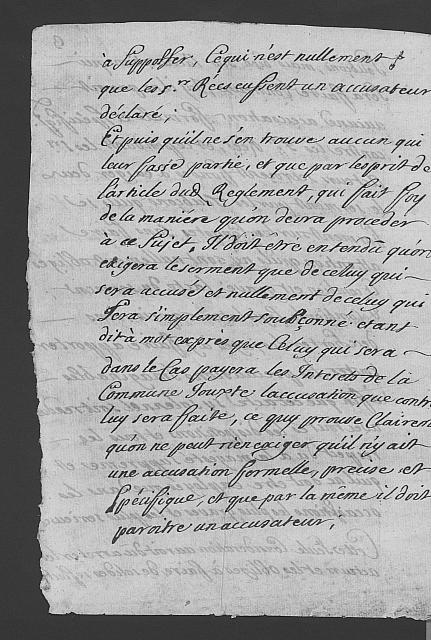 à Supposser, Ce qui n'est nullement
que les s.rs Rées eussent un accusateur
déclaré;
Et puis qu'il ne s'en trouve aucun qui
leur fasse partie, et que par l'esprit de
l'article dud. Reglement, qui fait foy
de la maniére qu'on devra proceder
à ce Sujet, Il doit être entendû qu'on
exigera le serment que de celuy qui
sera accusé et nullement de celuy qui
sera simplement soubçonné étant
dit à mot exprès que Celuy qui sera
dans le Cas payera les Interets de la
Commune Jouxte l'accusation que contre
luy sera faite, ce quy prouve Clairem
qu'on ne peut rien exiger qu'il n'y ait
une accusation formelle, precise, et
Spécifique, et que par la même il doit
paroitre un accusateur,